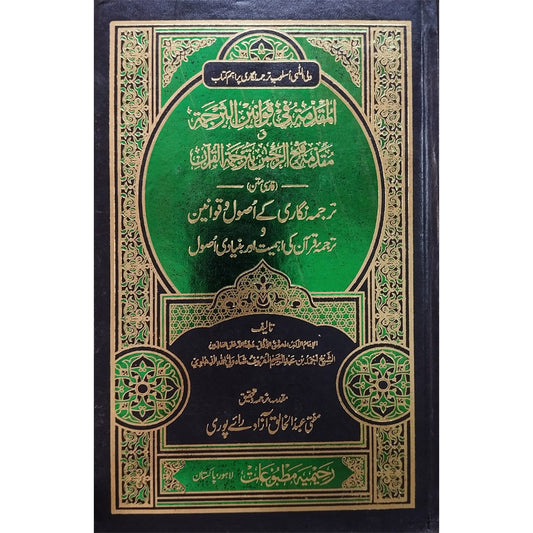 ولی اللّٰہی اسلوبِ ترجمہ نگاری پر اہم کتاب
المقدمة في قوانين الترجمة
و
مقدمة فتح الرحمٰن بترجمة القرآن
(فارسی متن)
ترجمہ نگاری کے اُصول و قوانین
و
ترجمہ قرآن کی اہمیت اور بنیادی اُصول
تالیف
الشیخ احمد بن عبد الرحیم المعروف شاہ ولی اللہ الدہلوی
مقدمہ، ترجمہ و تحقیق
مفتی عبدالخالق آزاد رائے پوری
رحیمیہ مطبوعات لاہور پاکستان